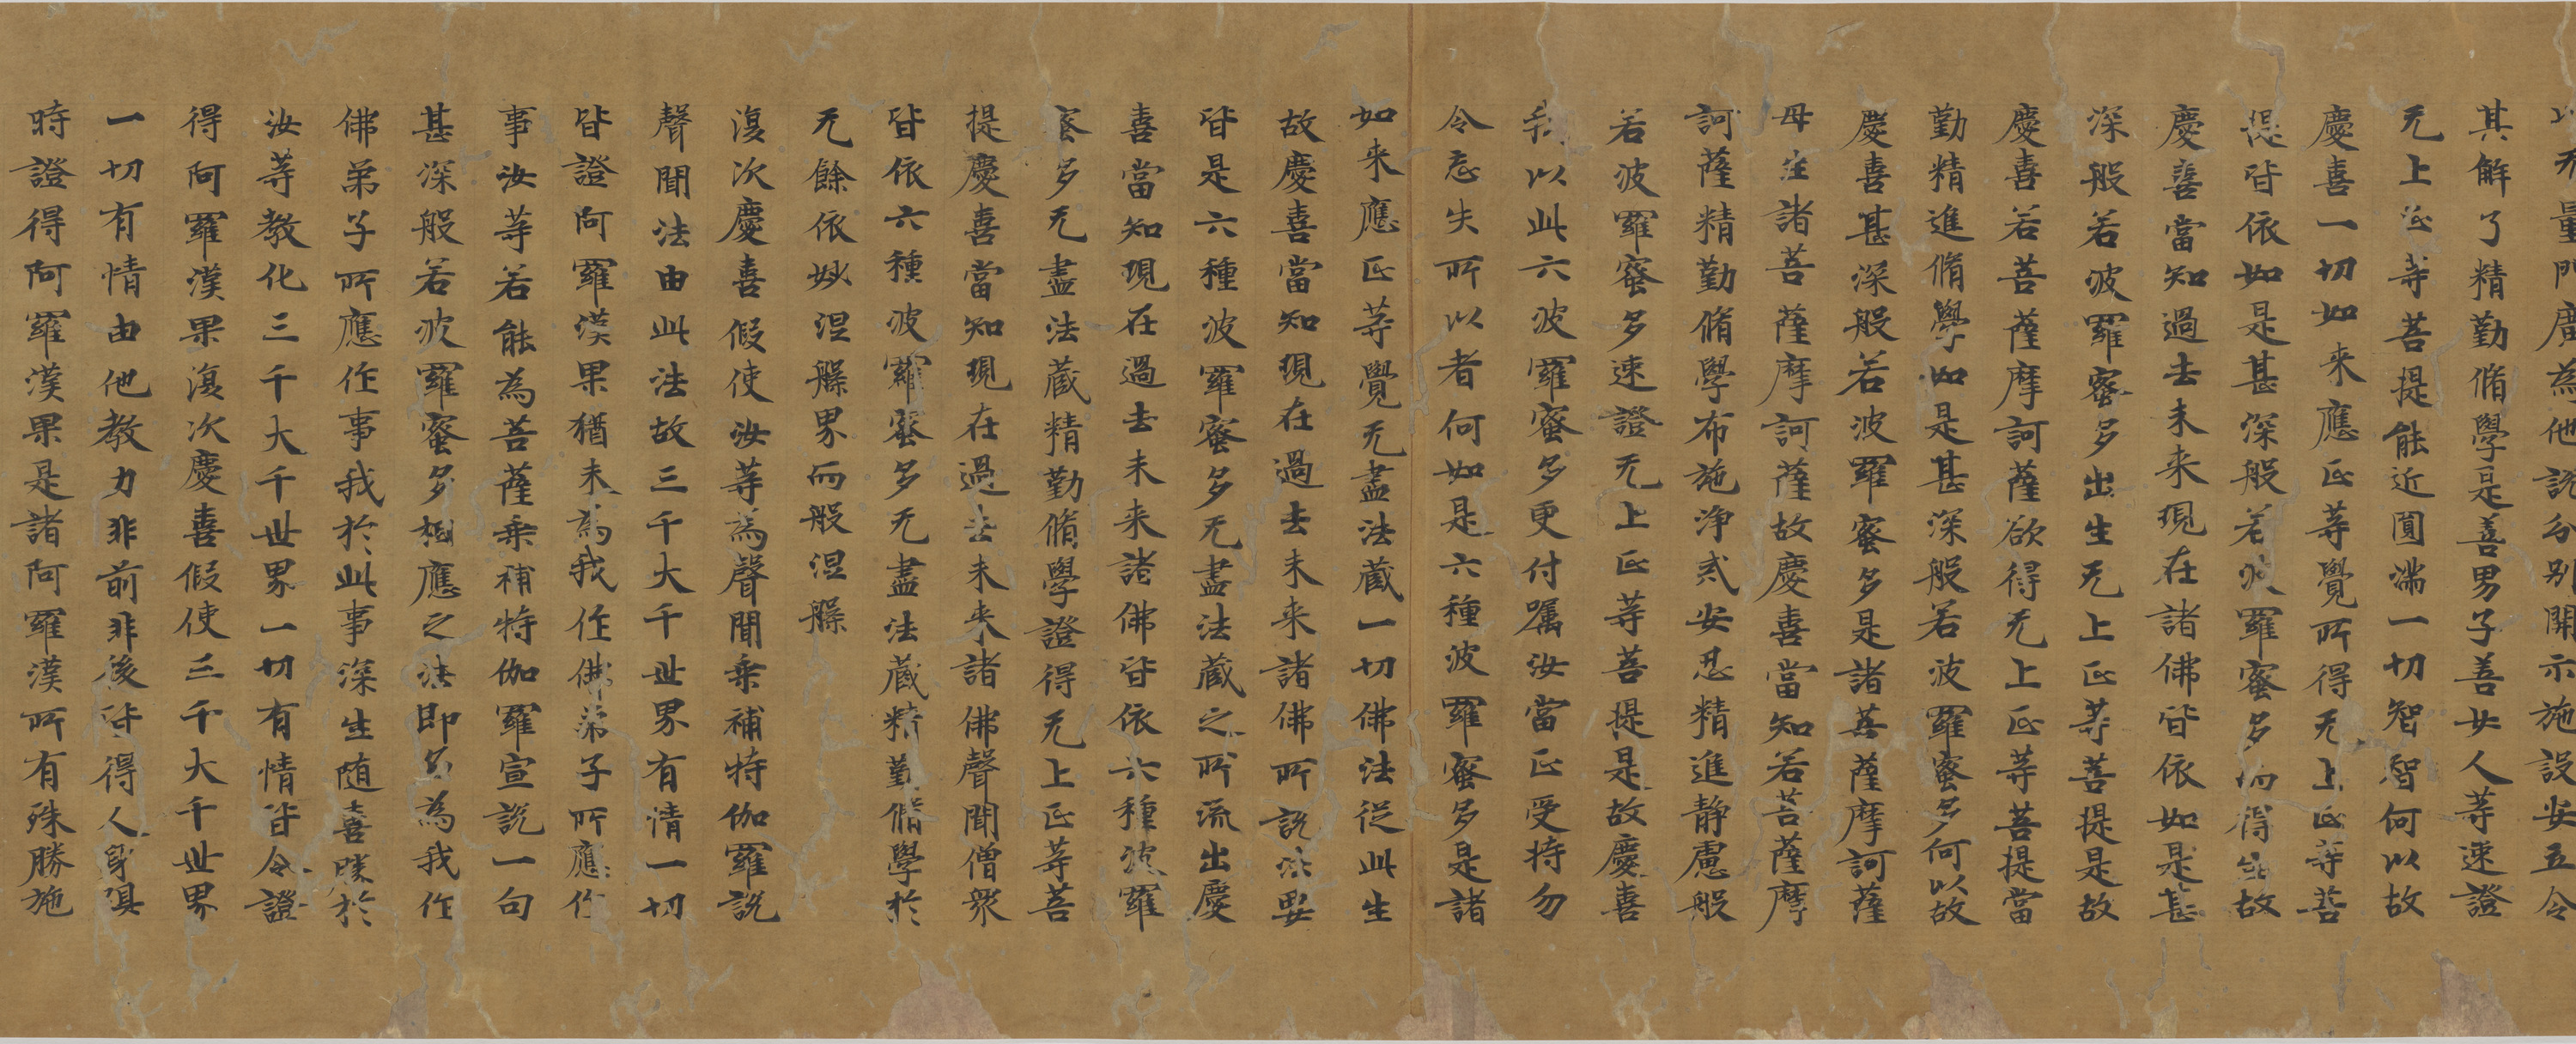 以无量門廣為他說分別開示施設安立令
其解了精勤脩學是善男子善女人等速證
无上正等菩提能近圓滿一切智智何以故
慶喜一切如来應正等覺所得无上正等菩
提皆依如是甚深般若波羅蜜多而得生故
慶喜當知過去未来現在諸佛皆依如是甚
深般若波羅蜜多出生无上正等菩提是故
慶喜若菩薩摩訶薩欲得无上正等菩提當
勤精進脩學如是甚深般若波羅蜜多何以故
慶喜甚深般若波羅蜜多是諸菩薩摩訶薩
母生諸菩薩摩訶薩故慶喜當知若菩薩摩
訶薩精勤脩學布施淨貳安忍精進靜慮般
若波羅蜜多速證无上正等菩提是故慶喜
我以此六波羅蜜多更付囑汝當正受持勿
令忘失所以者何如是六種波羅蜜多是諸
如来應正等覺无盡法藏一切佛法從此生
故慶喜當知現在過去未来諸佛所說法要
皆是六種波羅蜜多无盡法藏之所流出慶
喜當知現在過去未来諸佛皆依六種波羅
蜜多无盡法藏精勤脩學證得无上正等菩
提慶喜當知現在過去未来諸佛聲聞僧衆
皆依六種波羅蜜多无盡法藏精勤脩學於
无餘依妙涅槃界而般涅槃
復次慶喜假使汝等為聲聞乘補特伽羅說
聲聞法由此法故三千大千世界有情一切
皆證阿羅漢果猶未為我作佛弟子所應作
事汝等若能為菩薩乘補特伽羅宣說一句
甚深般若波羅蜜多相應之法即名為我作
佛弟子所應作事我於此事深生随喜勝於
汝等教化三千大千世界一切有情皆令證
得阿羅漢果復次慶喜假使三千大千世界
一切有情由他教力非前非後皆得人身俱
時證得阿羅漢果是諸阿羅漢所有殊勝施